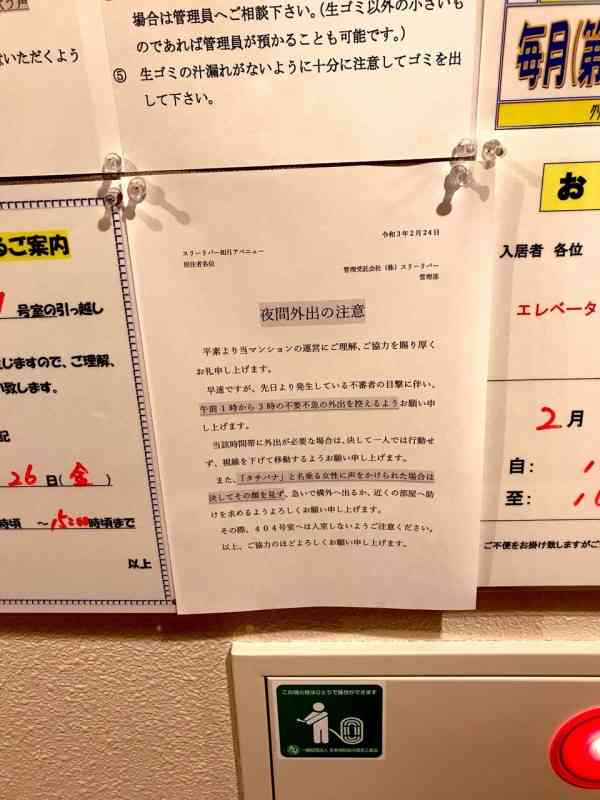 場合は管理員へご相談下さい。(生ゴミ以外の小さいも
のであれば管理員が預かることも可能です。)
⑤ 生ゴミの汁漏れがないように十分に注意してゴミを出
して下さい。
いただくよう
毎月(第
るご案内
号室の引っ越し
じますので、ご理解、
致します。
記
26日(金)
時頃 ~15:00時頃まで
以上
令和3年2月24日
スリーリバー如月アベニュー
居住者各位
管理受託会社(株)スリーリバー
管理部
夜間外出の注意
平素より当マンションの運営にご理解、ご協力を賜り厚く
お礼申し上げます。
早速ですが、先日より発生している不審者の目撃に伴い、
午前1時から3時の不要不急の外出を控えるようお願い申
し上げます。
当該時間帯に外出が必要な場合は、決して一人では行動せ
ず、視線を下げて移動するようお願い申し上げます。
また、「タチバナ」と名乗る女性に声をかけられた場合は
決してその顔を見ず、急いで構外へ出るか、近くの部屋へ助
けを求めるようよろしくお願い申し上げます。
その際、404号室へは入室しないようご注意ください。
以上、ご協力のほどよろしくお願い申し上げます。
お
入居者 各位
エレベータ
2月
自:
至:
ご不便をお掛け致しますがご
この消火栓はひとりで操作ができます